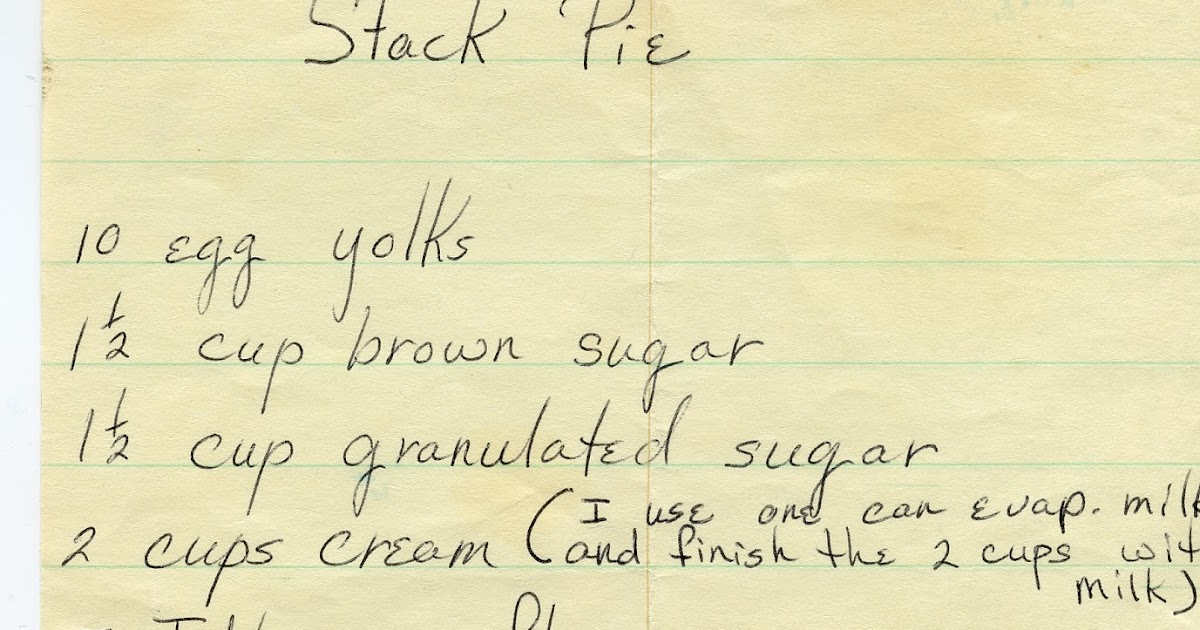 Stack Pie
10 egg yolks
1 1/2 cup brown sugar
1 1/2 cup granulated sugar
(I use one can evap. milk
2 cups cream (and finish the 2 cups wit
milk)